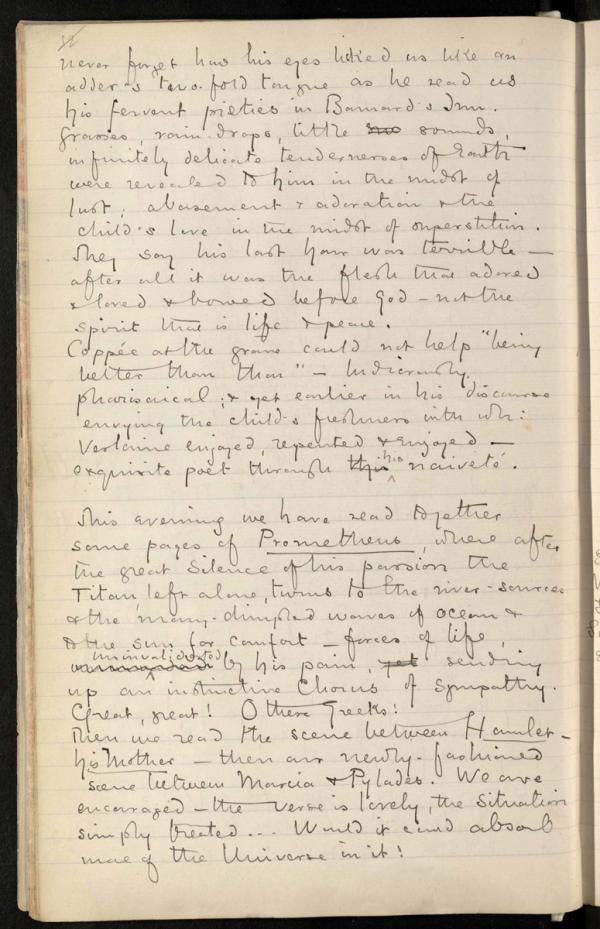 12
never forget how his eyes licked us like an
adder's two-fold tongue as he read us
his fervent pieties in Barnard's Inn.
Grasses, rain-drops, little sounds,
infinitely delicate tendernesses of Earth
were revealed to him in the midst of
lust; abasement & adoration & the
child's love in the midst of superstition.
They say his last hour was terrible —
after all it was the flesh that adored
& loved & bowed before God — not the
spirit that is life & peace.
Coppée at the grave could not help "being
better than thou" — ludicrously
pharisaical; & yet earlier in his discourse
envying the child's freshness with wh:
Verlaine enjoyed, repented & enjoyed —
exquisite poet through his naiveté.
This evening we have read together
some pages of Prometheus, where after
the great Silence of his passion the
Titan left alone, turns to the river-sources
& the many-dimpled waves of ocean &
to the sun for comfort — forces of life,
uninvalidated by his pain, sending
up an instinctive Chorus of Sympathy.
Great, great! O these Greeks!
Then we read the scene between Hamlet -
his Mother — then our newly-fashioned
scene between Marcia & Pylades. We are
encouraged — the verse is lovely, the situation
simply treated... Would it could absorb
more of the Universe in it!